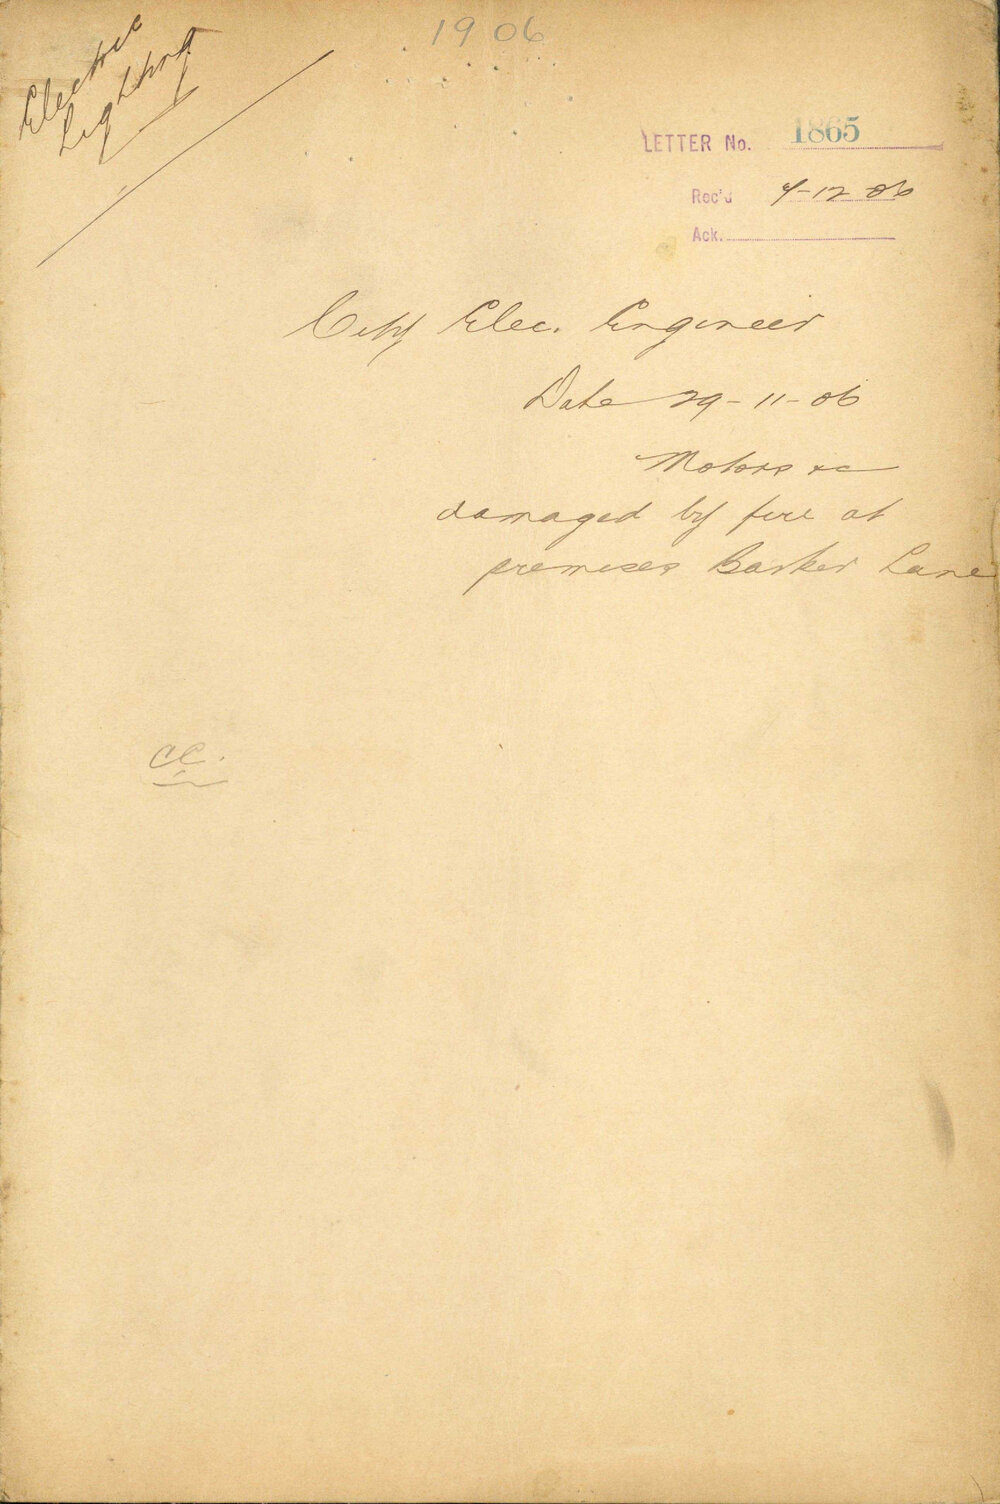 1906
Electric
Lighting
LETTER No. 1865
Rec'd 4-12-06
Ack.
City Elec. Engineer
Date 29-11-06
Motors &c
damaged by fire at
premises Barker Lane